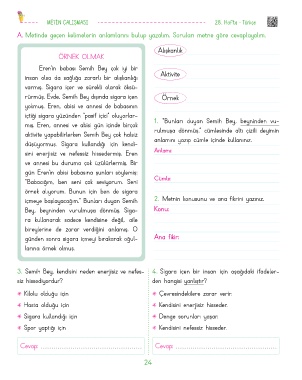 METİN ÇALIŞMASI
28. Hafta - Türkçe
A. Metinde geçen kelimelerin anlamlarını bulup yazalım. Soruları metne göre cevaplayalım.
ÖRNEK OLMAK
Eren'in babası Semih Bey çok iyi bir
insan olsa da sağlığa zararlı bir alışkanlığı
varmış. Sigara içer ve sürekli olarak öksü-
rürmüş. Evde, Semih Bey dışında sigara içen
yokmuş. Eren, abisi ve annesi de babasının
içtiği sigara yüzünden "pasif içici" oluyorlar-
mış. Eren, annesi ve abisi gün içinde birçok
aktivite yapabilirlerken Semih Bey çok halsiz
düşüyormuş. Sigara kullandığı için kendi-
sini enerjisiz ve nefessiz hissedermiş. Eren
ve annesi bu duruma çok üzülürlermiş. Bir
gün Eren'in abisi babasına şunları söylemiş:
"Babacığım, ben seni çok seviyorum. Seni
örnek alıyorum. Bunun için ben de sigara
içmeye başlayacağım." Bunları duyan Semih
Bey, beyninden vurulmuşa dönmüş. Siga-
ra kullanarak sadece kendisine değil, aile
bireylerine de zarar verdiğini anlamış. O
günden sonra sigara içmeyi bırakarak oğul-
larına örnek olmuş.
Alışkanlık
Aktivite
Örnek
1. "Bunları duyan Semih Bey, beyninden vu-
rulmuşa dönmüş." cümlesinde altı çizili deyimin
anlamını yazıp cümle içinde kullanınız.
Anlamı:
Cümle:
2. Metnin konusunu ve ana fikrini yazınız.
Konu:
Ana fikir:
3. Semih Bey, kendisini neden enerjisiz ve nefes-
siz hissediyordur?
Kilolu olduğu için
Hasta olduğu için
Sigara kullandığı için
Spor yaptığı için
Cevap:
4. Sigara içen bir insan için aşağıdaki ifadeler-
den hangisi yanlıştır?
Çevresindekilere zarar verir.
Kendisini enerjisiz hisseder.
Denge sorunları yaşar.
Kendisini nefessiz hisseder.
Cevap:
24